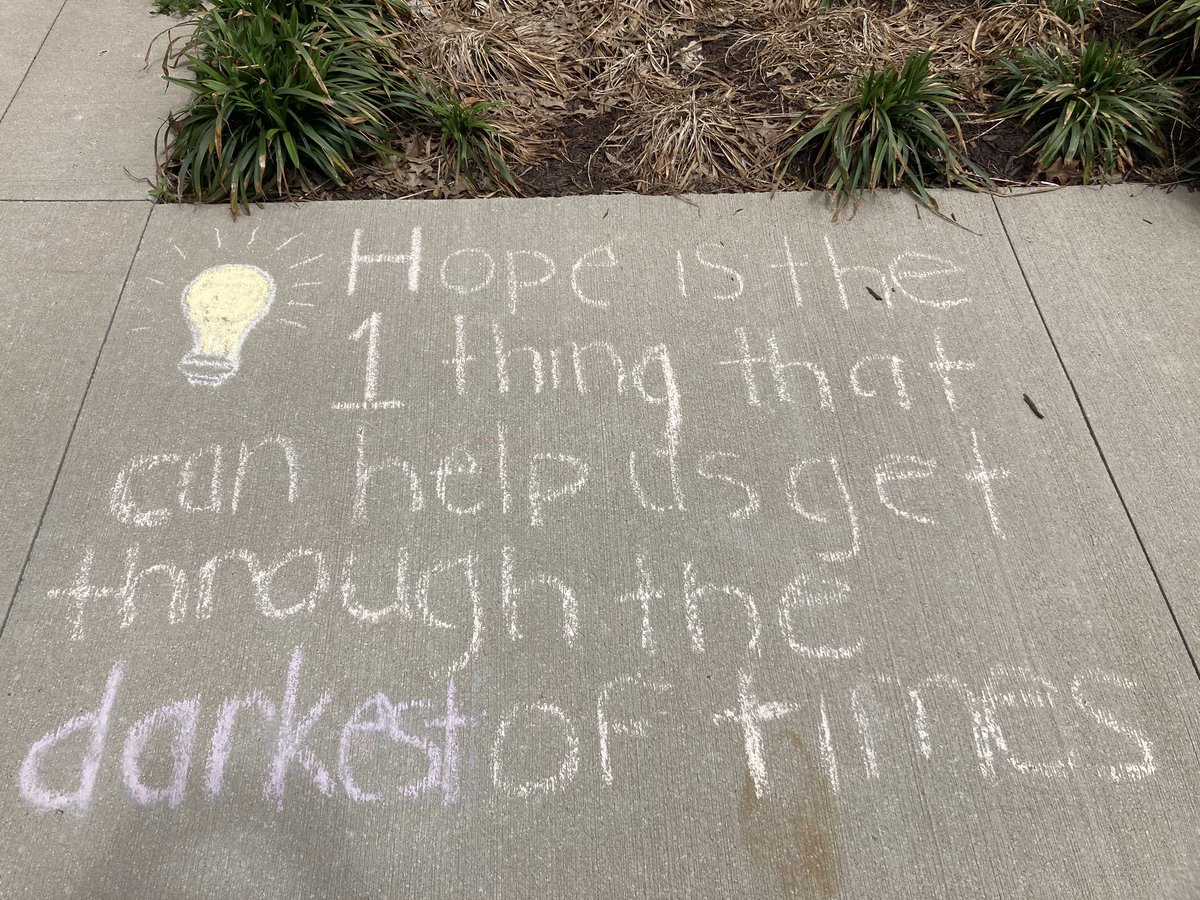 Hope is the
1 thing that
can help us get
through the
darkest of times